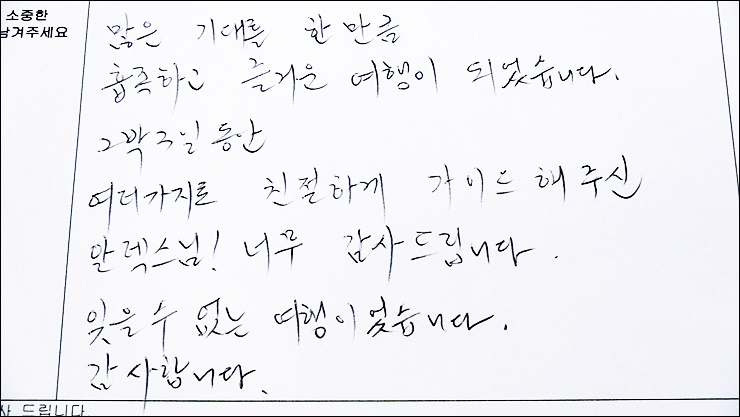 소중한
남겨주세요
많은 기대를 한 만큼
흡족하고 즐거운 여행이 되었습니다.
2박3일 동안
여러가지로 친절하게 가이드 해 주신
알렉스님! 너무 감사드립니다.
잊을 수 없는 여행이었습니다.
감사합니다.
사 드립니다.